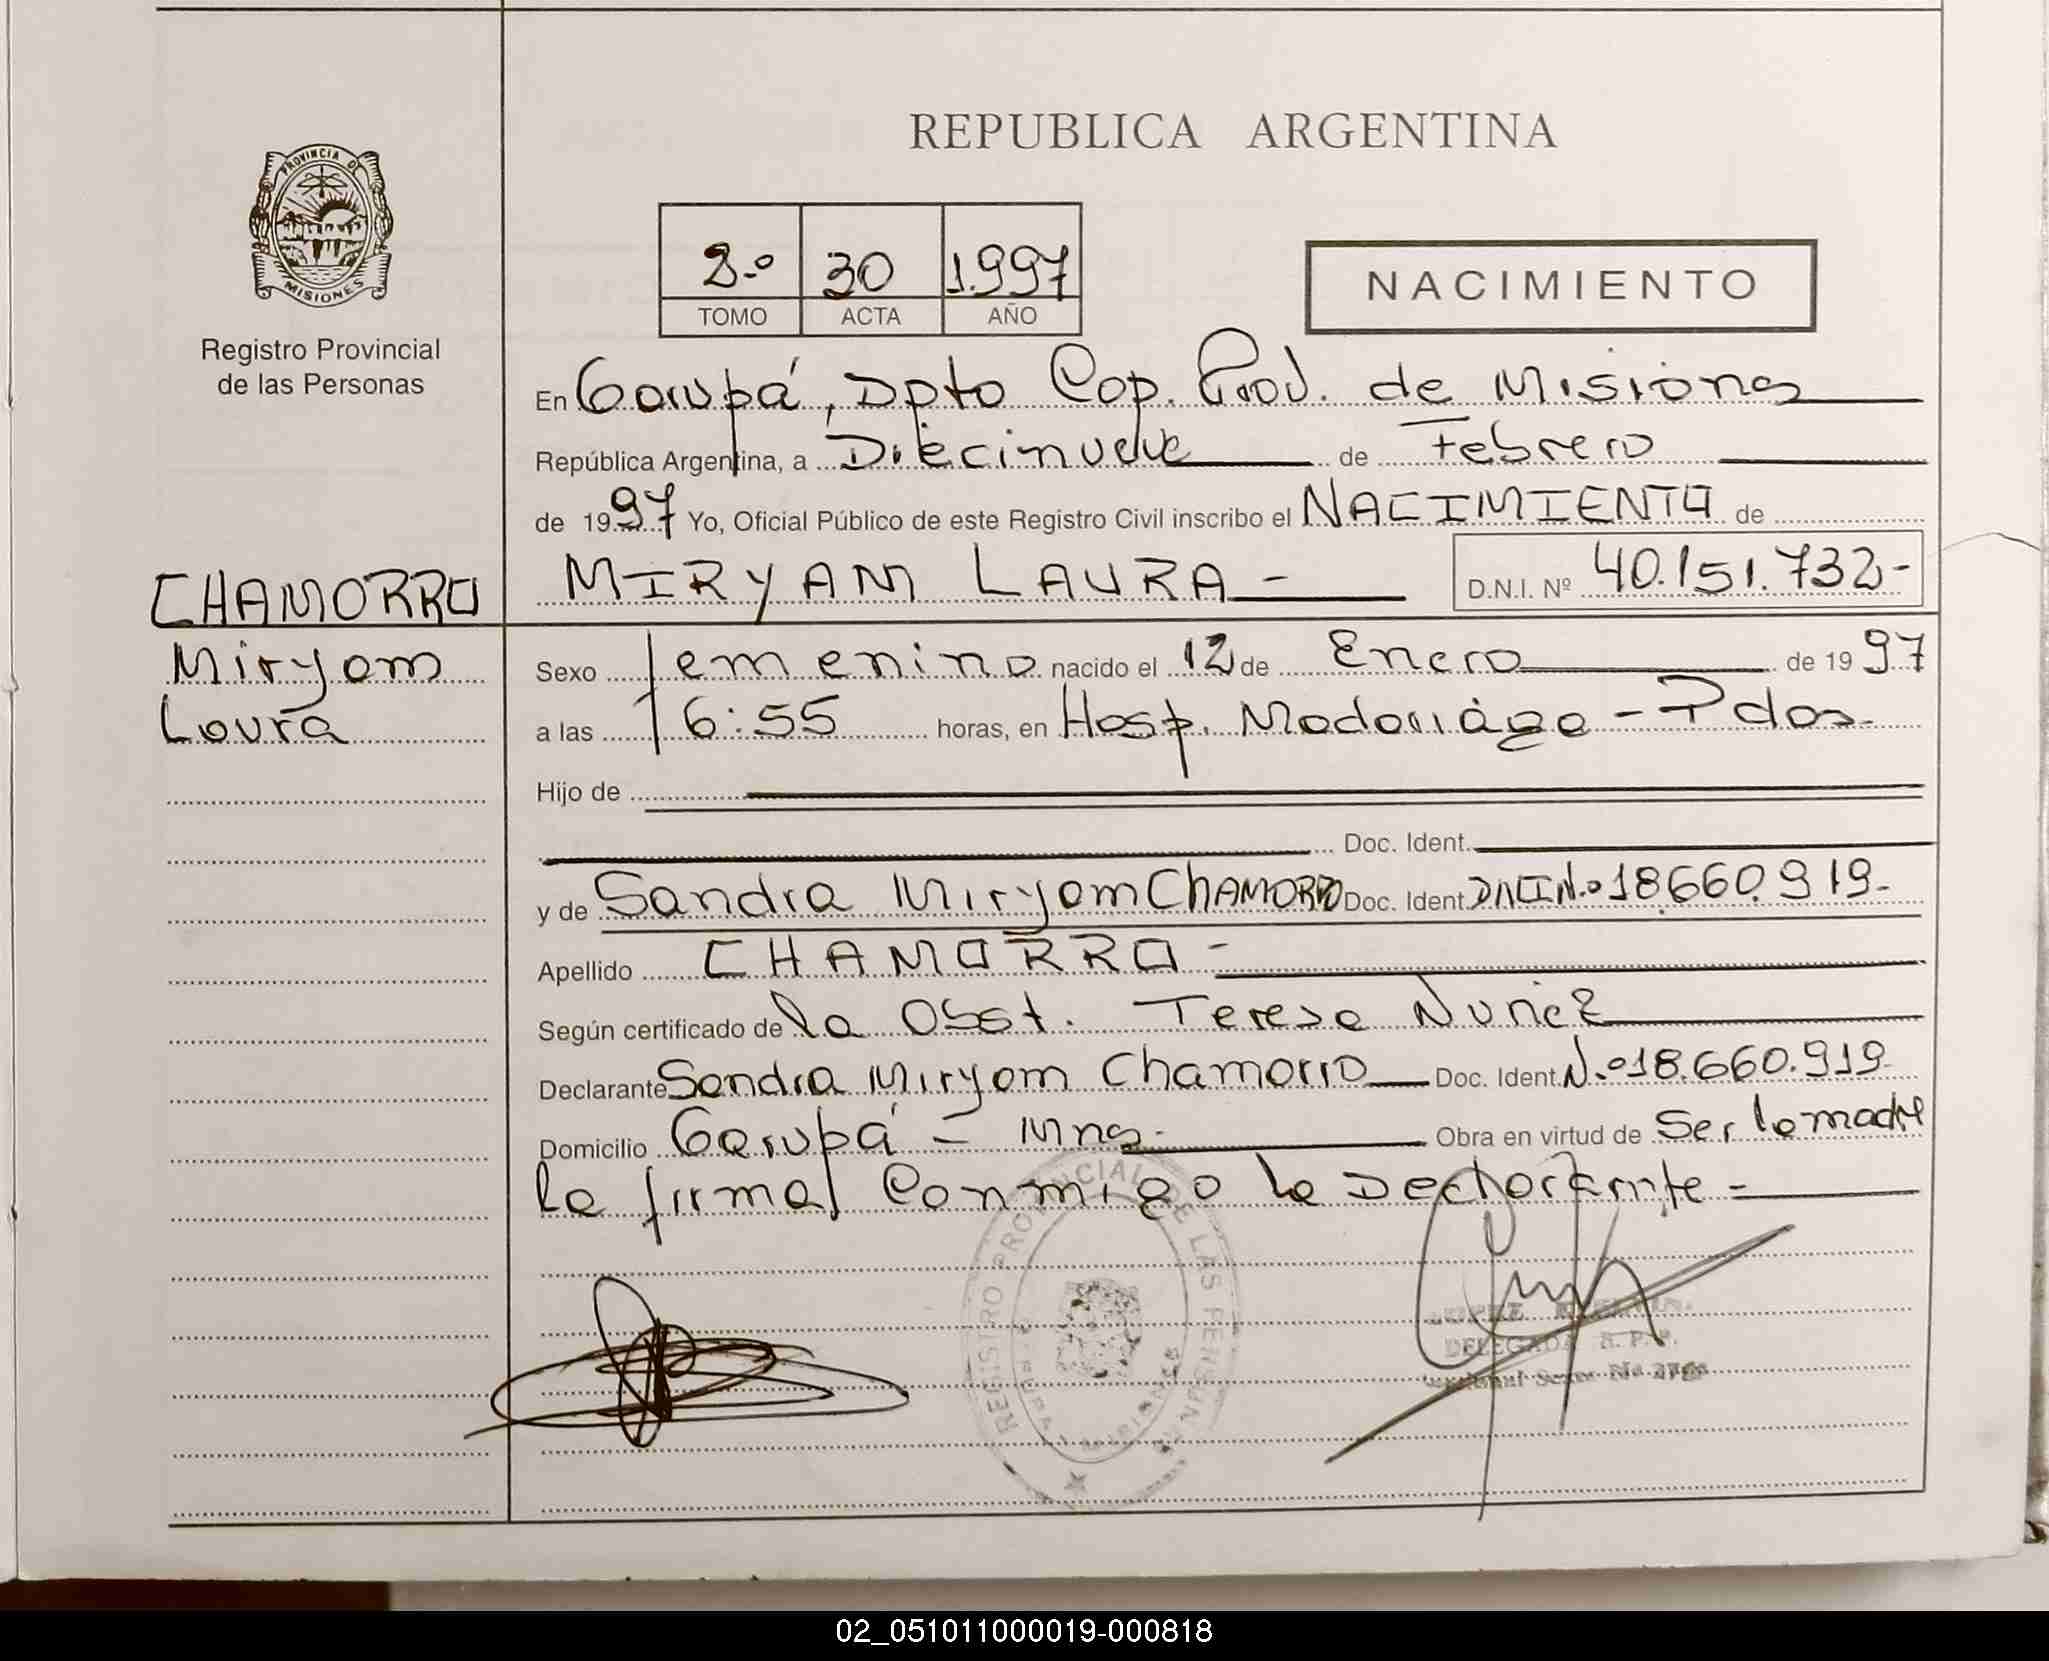 REPUBLICA ARGENTINA
PROVINCIA DE
MISIONES
Registro Provincial
de las Personas
2.º 30 1.997
TOMO ACTA AÑO
NACIMIENTO
En Garupá, Dpto Cap. Prov. de Misiones
República Argentina, a Diecinueve de Febrero
de 1997 Yo, Oficial Público de este Registro Civil inscribo el NACIMIENTO de
CHAMORRO MIRYAM LAURA - D.N.I. Nº 40.151.732-
Miryam Sexo femenino nacido el 12 de Enero de 1997
Laura a las 16:55 horas, en Hosp. Madariaga - Pdas.
Hijo de
Doc. Ident.
y de Sandra Miryam CHAMORRO Doc. Ident. DNI N.º 18.660.919-
Apellido CHAMORRO -
Según certificado de la Obst. Teresa Nuñez
Declarante Sandra Miryam Chamorro Doc. Ident. N.º 18.660.919-
Domicilio Garupá - Mnes. Obra en virtud de Ser la madre
la firma Conmigo la Declarante -
REGISTRO PROVINCIAL DE LAS PERSONAS
MISIONES
DELEGADA R.P.P.
02_051011000019-000818